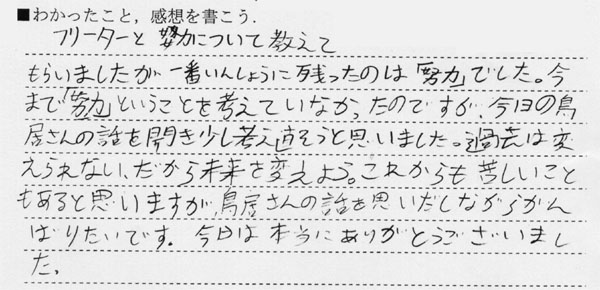 ■わかったこと，感想を書こう．
フリーターと努力について教えて
もらいましたが一番いんしょうに残ったのは「努力」でした。今
まで「努力」ということを考えていなかったのですが、今日の鳥
居さんの話を聞き少し考え直そうと思いました。過去は変
えられない、だから未来を変えよう。これからも苦しいこと
もあると思いますが、鳥居さんの話を思いだしながらがん
ばりたいです。今日は本当にありがとうございまし
た。